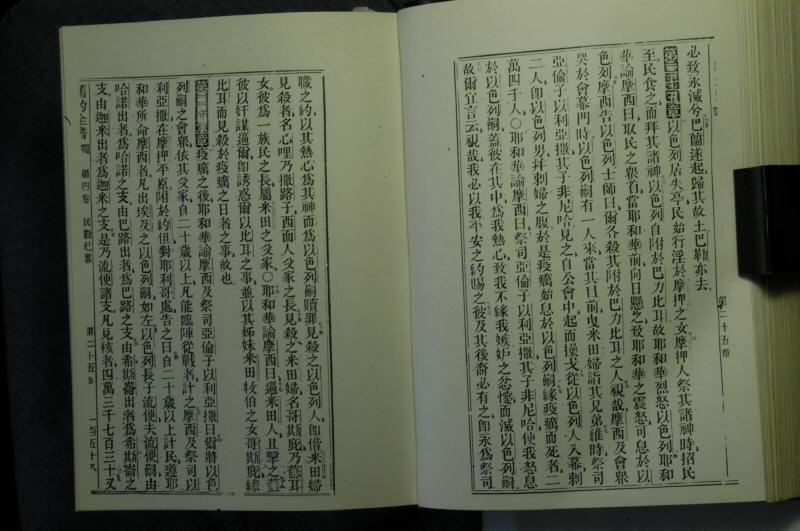 必致永滅兮巴蘭遂起歸其故土巴勒亦去
第二十五章以色列居失亭民始行淫於摩押之女摩押人祭其諸神時招民
至民食之而拜其諸神以色列自附於巴力比耳故耶和華烈怒以色列耶和
華諭摩西曰取民之衆酋當耶和華前向日懸之致耶和華之震怒可息於以
色列摩西告以色列士師曰爾各殺其附於巴力比耳之人視哉摩西及會衆
哭於會幕門時以色列嗣有一人來當其目前曳米田婦詣其兄弟維時祭司
亞倫子以利亞撒其子非尼哈見之自公會中起而操戈從以色列人入幕刺
二人卽以色列男幷刺婦之腹於是疫癘始息於以色列嗣緣疫癘而死者二
萬四千人〇耶和華諭摩西曰祭司亞倫子以利亞撒其子非尼哈使我怒息
於以色列嗣蓋彼在其中爲我熱心致我不緣我嫉妒之忿懥而滅以色列嗣
故爾宜言云視哉我必以我平安之約賜之彼及其後裔必有之卽永爲祭司
第二十五章
職之約以其熱心爲其神而爲以色列嗣贖罪見殺之以色列人卽偕米田婦
見殺者名心哩乃撒路子西面人父家之長見殺之米田婦名哥斯庇乃蘇耳
女彼爲一族民之長屬米田之父家〇耶和華諭摩西曰逼米田人且擊之蓋
彼以奸謀逼爾卽誘惑爾以比耳之事並以其姊妹米田牧伯之女哥斯庇緣
比耳而見殺於疫癘之日者之事故也
第二十六章疫癘之後耶和華諭摩西及祭司亞倫子以利亞撒曰爾將以色
列嗣之會衆依其父家自二十歲以上凡能臨陣從戰者計之摩西及祭司以
利亞撒在摩押平原附於約但對耶利哥處告之曰自二十歲以上計民遵耶
和華所命摩西者凡出埃及之以色列嗣如左以色列長子流便夫流便嗣由
哈諾出者爲哈諾之支由巴路出者爲巴路之支由希斯崙出者爲希斯崙之
支由迦米出者爲迦米之支是乃流便諸支凡見核者四萬三千七百三十又
舊約全書 第四卷 民數紀畧 第二十五章 一百五十八